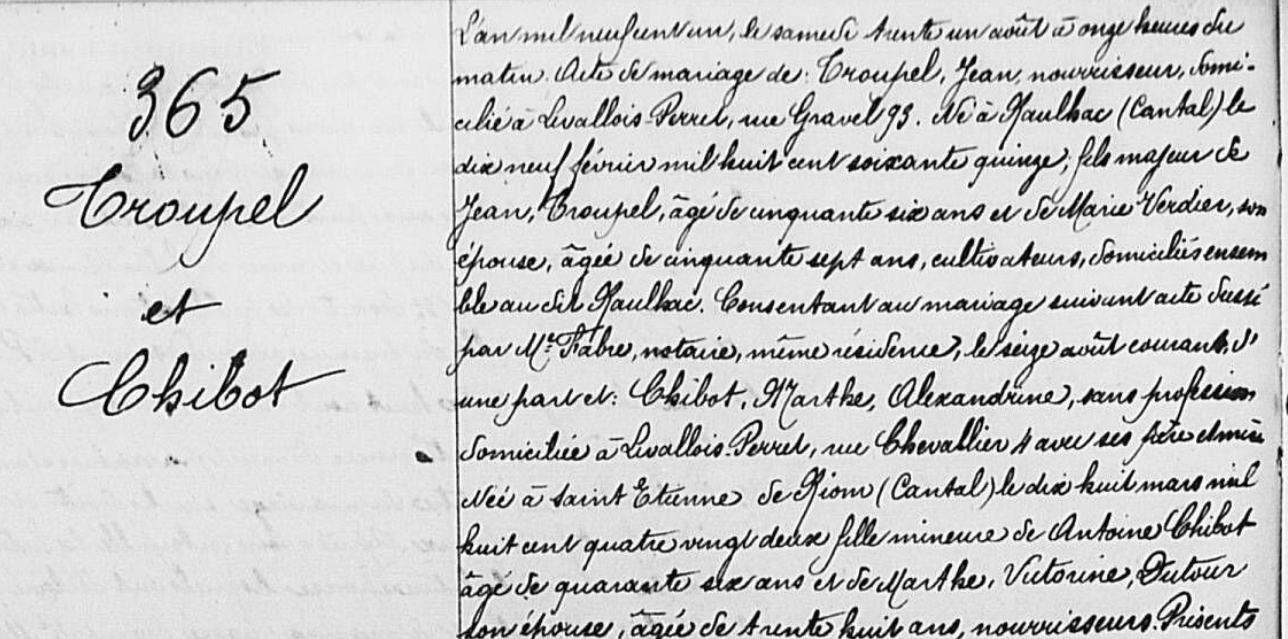 365
Troupel
et
Chibot
L'an mil neuf cent un, le samedi trente un août à onze heures du
matin. Acte de mariage de: Troupel, Jean, nourrisseur, domi-
cilié à Levallois-Perret, rue Gravel 93. Né à Raulhac (Cantal) le
dix neuf février mil huit cent soixante quinze, fils majeur de
Jean, Troupel, âgé de cinquante six ans et de Marie Verdier, son
épouse, âgée de cinquante sept ans, cultivateurs, domiciliés ensem
ble au dit Raulhac. Consentant au mariage suivant acte dressé
par Me Fabre, notaire, même résidence, le seize août courant, d'
une part et: Chibot, Marthe, Alexandrine, sans profession
domiciliée à Levallois-Perret, rue Chevallier 4 avec ses père et mère
Née à Saint Etienne de Riom (Cantal) le dix huit mars mil
huit cent quatre vingt deux fille mineure de Antoine Chibot
âgé de quarante six ans et de Marthe, Victorine, Dutour
son épouse, âgée de trente huit ans, nourrisseurs. Présents